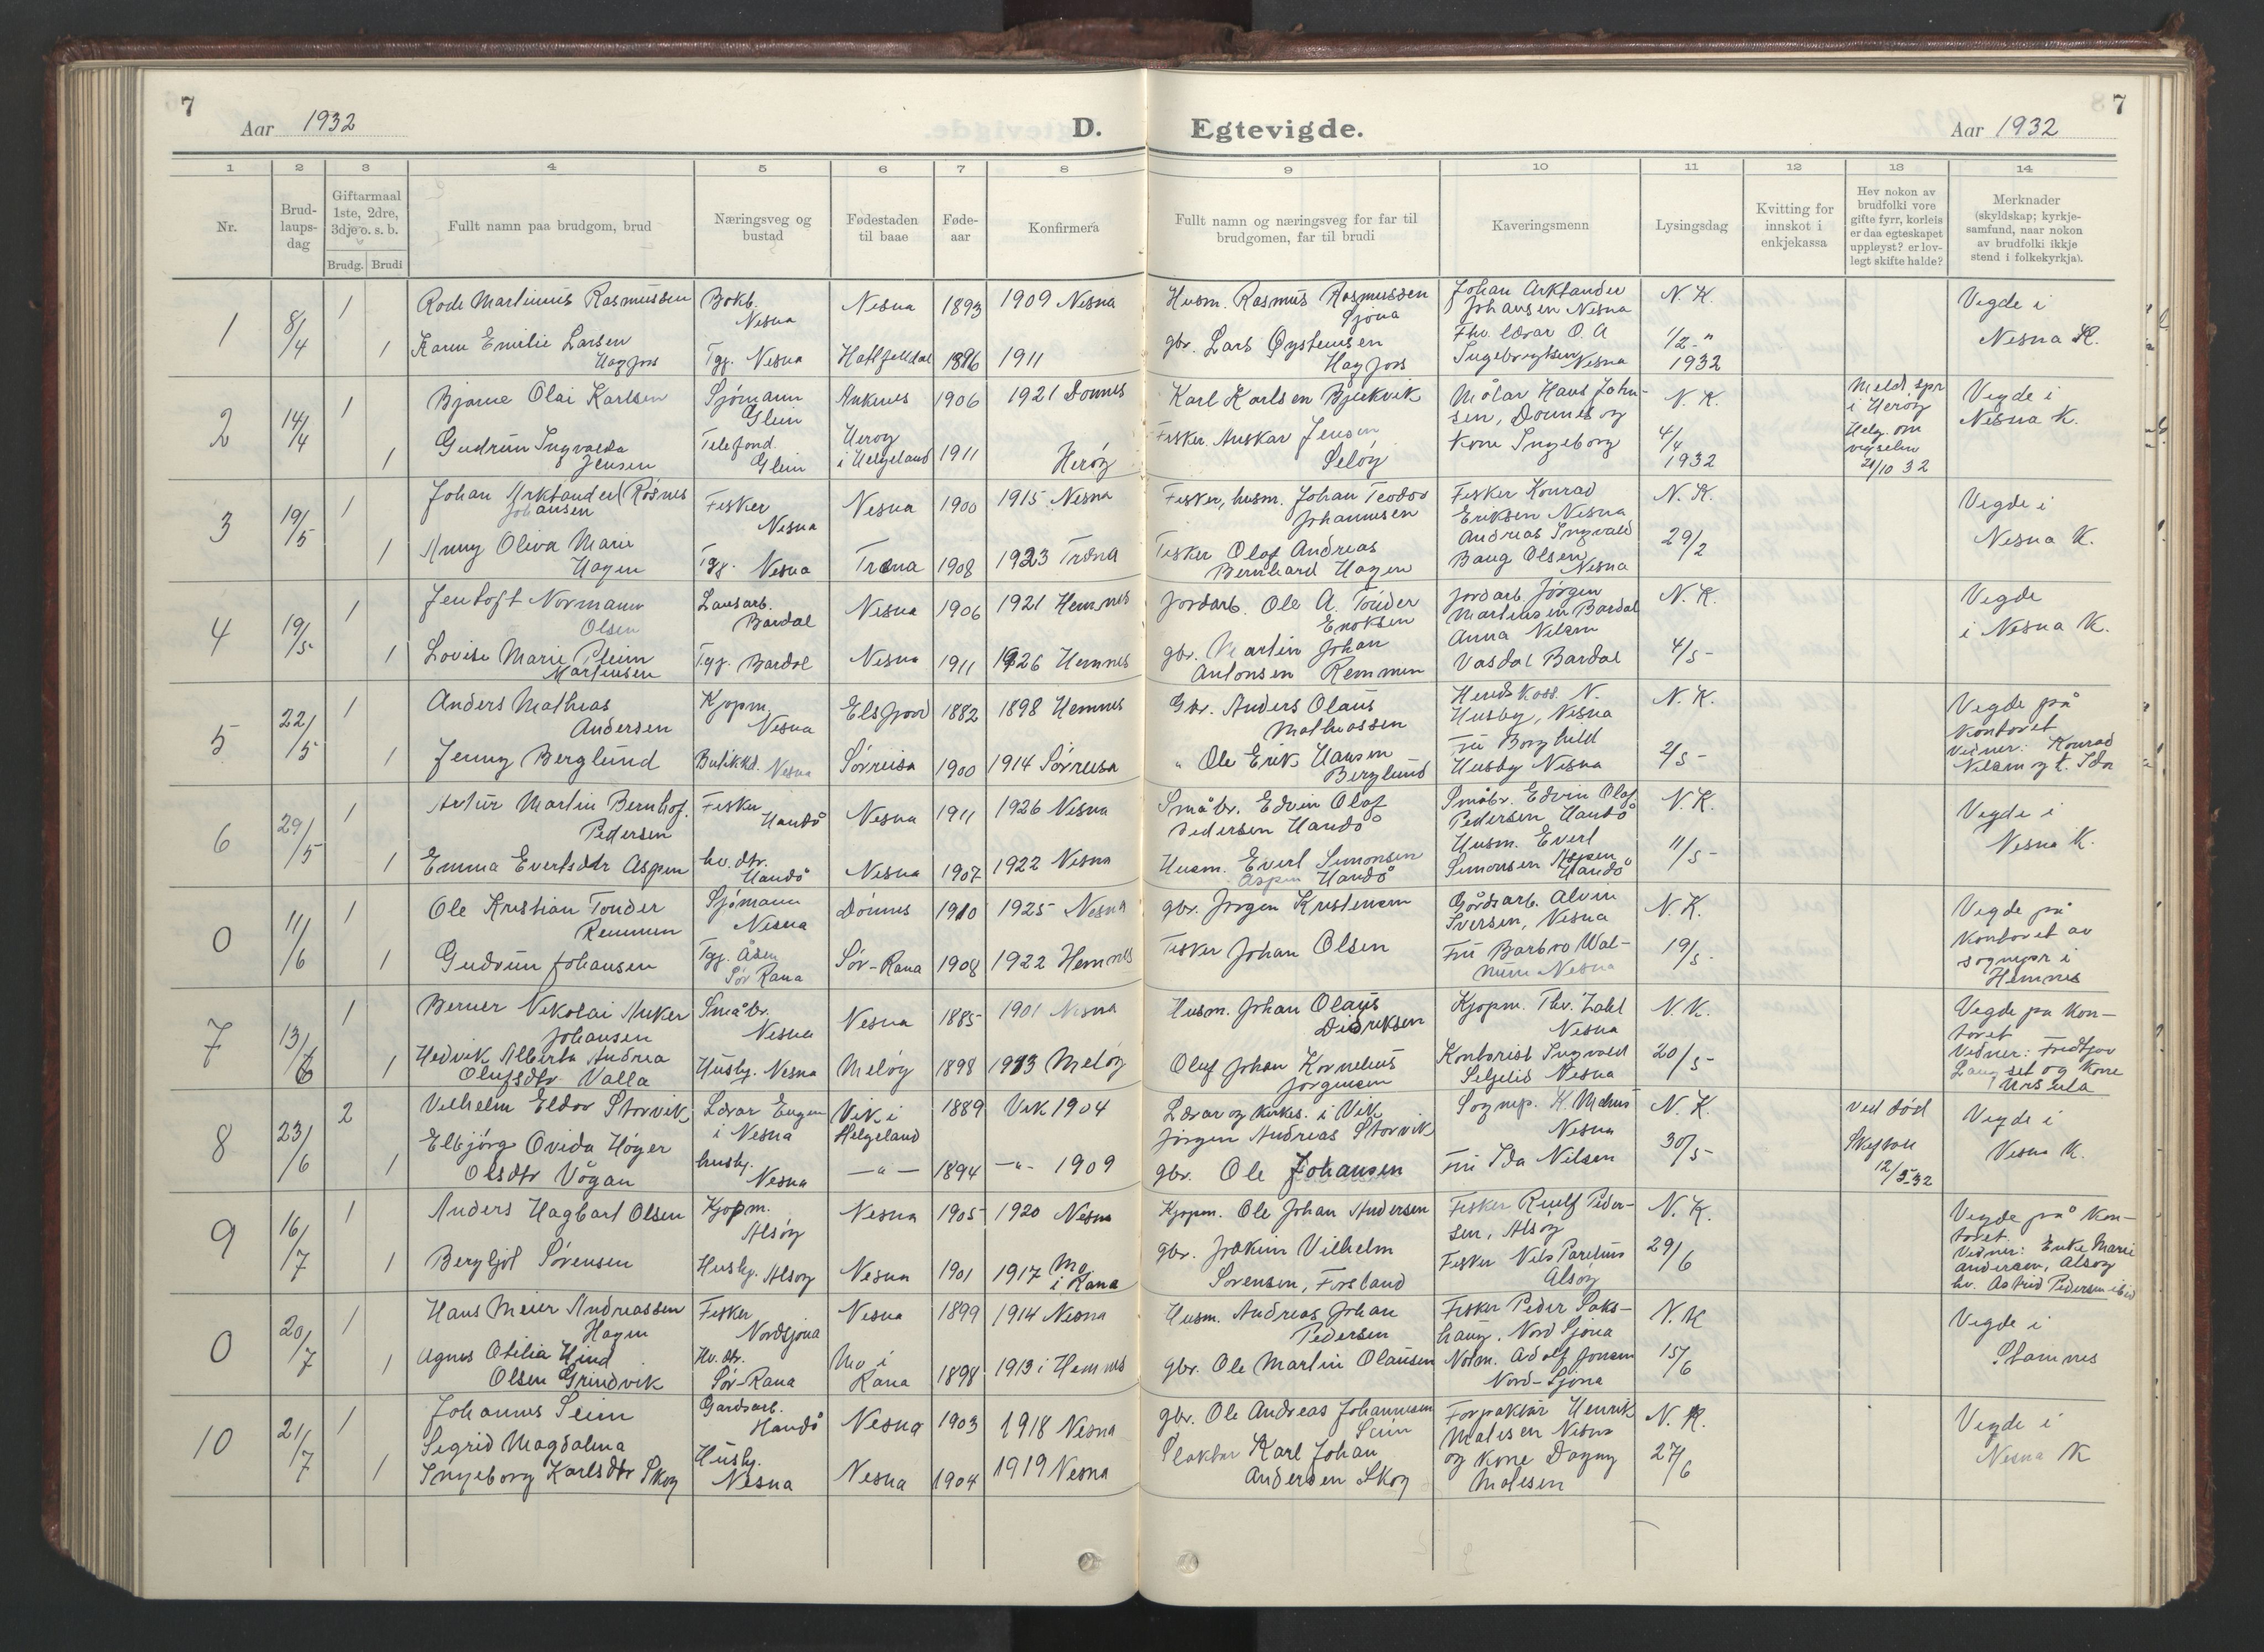 7
Aar 1932
D.
Egtevigde.
Aar 1932
7
1 2 3 4 5 6 7 8 9 10 11 12 13 14
Nr.
Brud-
laups-
dag
Giftarmaal
1ste, 2dre,
3dje o. s. b.
Brudg. Brudi
Fullt namn paa brudgom, brud
Næringsveg og
bustad
Fødestaden
til baae
Føde-
aar
Konfirmera
Fullt namn og næringsveg for far til
brudgomen, far til brudi
Kaveringsmenn
Lysingsdag
Kvitting for
innskot i
enkjekassa
Hev nokon av
brudfolki vore
gifte fyrr, korleis
er daa egteskapet
uppløyst? er lov-
legt skifte halde?
Merknader
(skyldskap; kyrkje-
samfund, naar nokon
av brudfolki ikkje
stend i folkekyrkja).
1
8/4
1
Rode Martinus Rasmussen
Bokb.
Nesna
Nesna
1893
1909 Nesna
Husm. Rasmus Rasmussen
Sjona
Johan Arktander
Johansen Nesna
N. K.
Vigde i
Nesna K.
1
Karen Emilie Larsen
Hagfors
Tgj. Nesna
Hatfjelldal
1896
1911
gbr. Lars Øystensen
Hagfors
Fhv. lærar O. A
Ingebrigtsen Nesna
1/2 - "
1932
2
14/4
1
Bjarne Olai Karlsen
Sjømann
Glein
Ankenes
1906
1921 Dønnes
Karl Karlsen Bjerkvik
Målar Hans John-
sen, Dønnes og
N. K.
Meldt spr
i Herøy
Helg. om
vigselen
21/10 32
Vigde i
Nesna K.
1
Gudrun Ingvalda
Jensen
Telefond.
Glein
Herøy
i Helgeland
1911
Herøy
Fisker. Anskar Jensen
Seløy
Kone Ingeborg
4/4
1932
3
19/5
1
Johan Arktander (Røsnes
Johansen
Fisker
Nesna
Nesna
1900
1915 Nesna
Fisker, husm. Johan Teodor
Johannesen
Fisker Konrad
Eriksen Nesna
N. K.
Vigde i
Nesna K.
1
Anny Oliva Marie
Hagen
Tgj. Nesna
Træna
1908
1923 Træna
Fisker Olaf Andreas
Bernhard Hagen
Andreas Ingvald
Baug Olsen
Nesna
29/2
4
19/5
1
Jentoft Normann
Olsen
Lausarb.
Bardal
Nesna
1906
1921 Hemnes
Jordarb. Ole A. Tonder
Enoksen
Jordarb. Jørgen
Martinsen Bardal
N. K.
Vigde
i Nesna K.
1
Lovise Marie Pleim
Martinsen
Tgj. Bardal
Nesna
1911
1926 Hemnes
gbr. Martin Johan
Antonsen Remmen
Anna Nilsen
Vasdal Bardal
4/5 -
5
22/5
1
Anders Mathias
Andersen
Kjøpm.
Nesna
Elsfjord
1882
1898 Hemnes
Gbr. Anders Olaus
Mathiassen
Heridskass. N.
Husby, Nesna
N. K.
Vigde på
kontoret
Vidner: Konrad
Nilsen og f. Ida
1
Jenny Berglund
Butikkd. Nesna
Sørreisa
1900
1914 Sørreisa
" Ole Erik Hansen
Berglund
Fru Borghild
Husby Nesna
2/5 -
6
29/5
1
Artur Martin Bernhof.
Pedersen
Fisker
Handø
Nesna
1911
1926 Nesna
Småbr. Edvin Olaf
Pedersen Handø
Småbr. Edvin Olaf
Pedersen Handø
N. K.
Vigde i
Nesna K.
1
Emma Evertsdtr Aspen
hv. dtr.
Handø
Nesna
1907
1922 Nesna
Husm. Evert Simonsen
Aspen Handø
Husm. Evert
Simonsen Aspen
Handø
11/5 -
0
11/6
1
Ole Kristian Tonder
Remmen
Sjømann
Nesna
Dønnes
1910
1925 Nesna
gbr. Jørgen Kristensen
Gårdsarb. Alvin
Iversen, Nesna
N. K.
Vigde på
kontoret av
sognepr i
Hemnes
1
Gudrun Johansen
Tgj. Åsen
Sør Rana
Sør-Rana
1908
1922 Hemnes
Fisker Johan Olsen
Fru Barbro Wal-
num Nesna
19/5 -
7
13/6
1
Berner Nikolai Anker
Johansen
Småbr.
Nesna
Nesna
1885
1901 Nesna
Husm. Johan Olaus
Didriksen
Kjøpm. Thv. Zahl
Nesna
N. K.
Vigde på kon-
toret
Vidner: Fridtjov
Langset og kone
Ursula
1
Hedvik Alberta Andrea
Olufsdtr Valla
Husby. Nesna
Meløy
1898
1913 Meløy
Oluf Johan Kornelius
Jørgensen
Kontorist Ingvald
Seljelid Nesna
20/5 -
8
23/6
2
Vilhelm Eldor Storvik
Lærar Eugen
i Nesna
Vik i
Helgeland
1889
Vik 1904
Lærar og kirkes. i Vik
Jørgen Andreas Storvik
Sognep. H. Mæhus
Nesna
N. K.
Ved død
Skiftou
12/5-32
Vigde i
Nesna K.
1
Elbjørg Ovida Høyer
Olsdtr Vågan
husby.
Nesna
— " —
1894
— " - 1909
gbr. Ole Johansen
Fru Ida Nilsen
30/5 -
9
16/7
1
Anders Hagbart Olsen
Kjøpm.
Alsøy
Nesna
1905
1920 Nesna
Kjøpm. Ole Johan Andersen
Fisker Rulf Peder-
sen, Alsøy
N. K.
Vigde på kon-
toret.
Vidner: Enke Marie
Andersen, Alsøy
hv. Astrid Pedersen ibid
1
Bergljot Sørensen
Husby. Alsøy
Nesna
1901
1917 Mo
i Rana
gbr. Joakim Vilhelm
Sørensen, Forsland
Fisker Nils Parelius
Alsøy
29/6
0
20/7
1
Hans Meier Andreassen
Hagen
Fisker
Nordsjona
Nesna
1899
1914 Nesna
Husm. Andreas Johan
Pedersen
Fisker Peder Saks-
haug, Nord Sjona
N. K
Vigde i
Stamnes
1
Agnes Otilia Hind
Olsen Grindvik
Hv. dtr.
Sør-Rana
Mo i
Rana
1898
1913 i Hemnes
gbr. Ole Martin Olausen
Notm. Adolf Jonsen
Nord-Sjona
15/6
10
21/7
1
Johannes Seim
Gardsarb.
Handø
Nesna
1903
1918 Nesna
gbr. Ole Andreas Johannesen
Seim
Forpaktar Henrik
Malesen Nesna
N. K.
Vigde i
Nesna K
1
Sigrid Magdalena
Ingeborg Karlsdtr Skog
Husby.
Nesna
Nesna
1904
1919 Nesna
Slaktar Karl Johan
Andersen Skog
og kone Dagny
Malesen
27/6